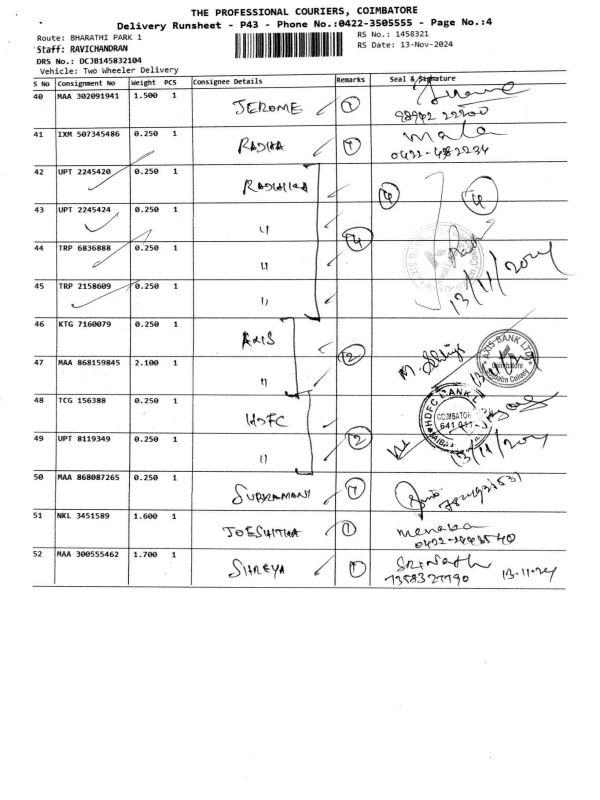 THE PROFESSIONAL COURIERS, COIMBATORE
Delivery Runsheet - P43 - Phone No.:0422-3505555 - Page No.:4
Route: BHARATHI PARK 1 RS No.: 1458321
Staff: RAVICHANDRAN RS Date: 13-Nov-2024
DRS No.: DCJB145832104
Vehicle: Two Wheeler Delivery
S No Consignment No Weight PCS Consignee Details Remarks Seal & Signature
40 MAA 302091941 1.500 1 JEROME 1
98942 22200
41 IXM 507345486 0.250 1 RADHA 1 Mala
0422-4382234
42 UPT 2245420 0.250 1 RADHIKA 4 4
43 UPT 2245424 0.250 1 " 4
44 TRP 6836888 0.250 1 "
13/11/2024
45 TRP 2158609 0.250 1 "
46 KTG 7160079 0.250 1 AXIS 2
AXIS BANK LTD
Coimbatore
47 MAA 868159845 2.100 1 "
48 TCG 156388 0.250 1 HDFC 2
HDFC BANK
COIMBATORE
641 011
49 UPT 8119349 0.250 1 "
13/11/2024
50 MAA 868087265 0.250 1 SUBRAMANI 1
51 NKL 3451589 1.600 1 JOESHITHA 1 menaka
52 MAA 300555462 1.700 1 SHREYA 1 Srinath
7358327790 13.11.24